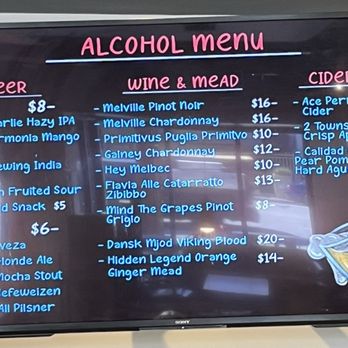 ALCOHOL menu
EER
$8-
arlie Hazy IPA
rmonia Mango
ewing India
n Fruited Sour
d Snack $5
$6-
veza
londe Ale
Mocha Stout
efeweizen
Ali Pilsner
WINE & MEAD
- Melville Pinot Noir $16-
- Melville Chardonnay $16-
- Primitivus Puglia Primitvo $10-
- Gainey Chardonnay $12-
- Hey Melbec $10-
- Flavia Alle Catarratto $13-
Zibibbo
- Mind The Grapes Pinot $8-
Grigio
- Dansk Mjod Viking Blood $20-
- Hidden Legend Orange $14-
Ginger Mead
CIDER
- Ace Perr
Cider
- 2 Towns
Crisp Ap
- Calidad
Pear Pom
Hard Agu
SONY